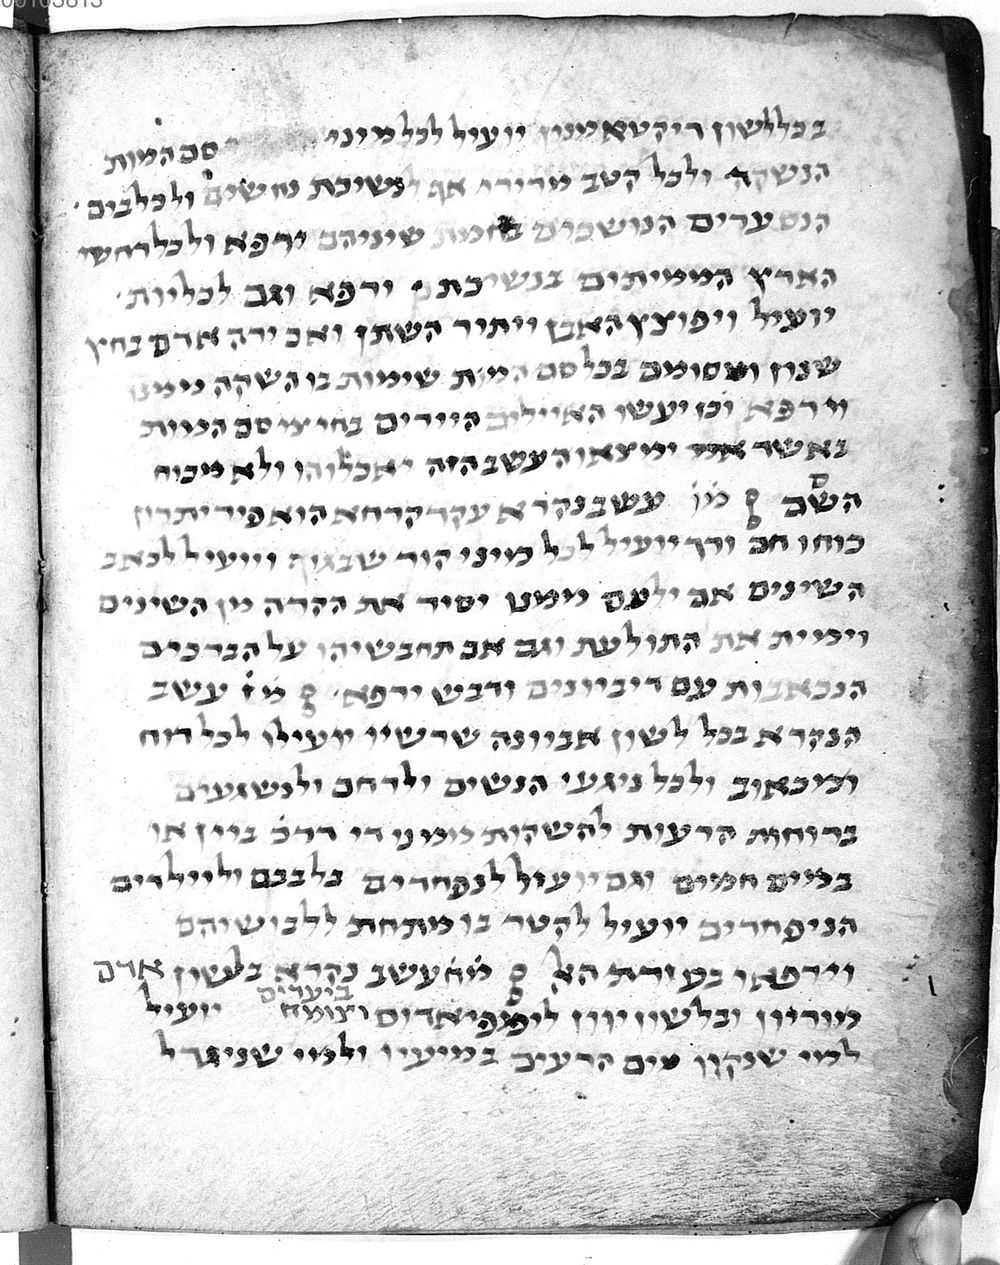 00103813
בכל לשון ריקטאמנון יועיל לכל מיני סם המות
הנשקה ולכל קטב מרירי אף לנשיכת נחשים ולכלבים
הנסערים הנושכים בחמת שיניהם ירפא ולכל רחשי
הארץ הממיתים בנשיכתן ירפא וגם לכליות
יועיל ויפוצץ האבן ויתיר השתן ואם ירה אדם בחץ
שנון ומסומם בכל סם המות שימות בו השקה ממנו
וירפא וכן יעשו האיילים היורים בחיצי סם המות
באשר ימצאו העשב הזה יאכלוהו ולא מכוח
הסם מו עשב נקרא עקר קרחא הוא פיריתרון
כוחו חם ורך יועיל לכל מיני קור שבגוף ויועיל לכאב
השינים אם ילעס ממנו יסיר את הקרה מן השינים
וימית את התולעת וגם אם תחבשיהו על הברכים
הנכאבות עם ריביונים ודבש ירפא מז עשב
הנקרא בכל לשון אביונה שרשיו יועילו לכל רוח
ומיכאוב ולכל ניגעי הנשים ולרחם ולמשגעים
ברוחות הרעות להשקות ממנו די הדרך ביין או
במים חמים וגם יועיל לנפחדים בלבבם ולילדים
הניפחדים יועיל לקטר בו מתחת ללבושיהם
וירפאו בעזרת האל מח עשב נקרא בלשון אדם
ביערים
מוריון ובלשון יוון לימפיאדוס וצומח יועיל
למי שנקוו מים הרעים במיעיו ולמי שניגרל